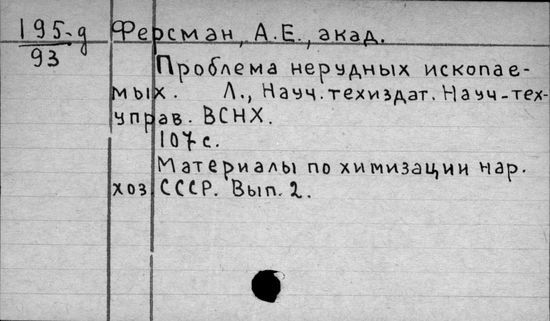 195-д
93
Ферсман, А.Е., акад.
Проблема нерудных ископае-
мых. Л., Науч.техиздат. Науч-тех-
управ. ВСНХ.
107 с.
Материалы по химизации нар.
хоз. СССР. Вып. 2.